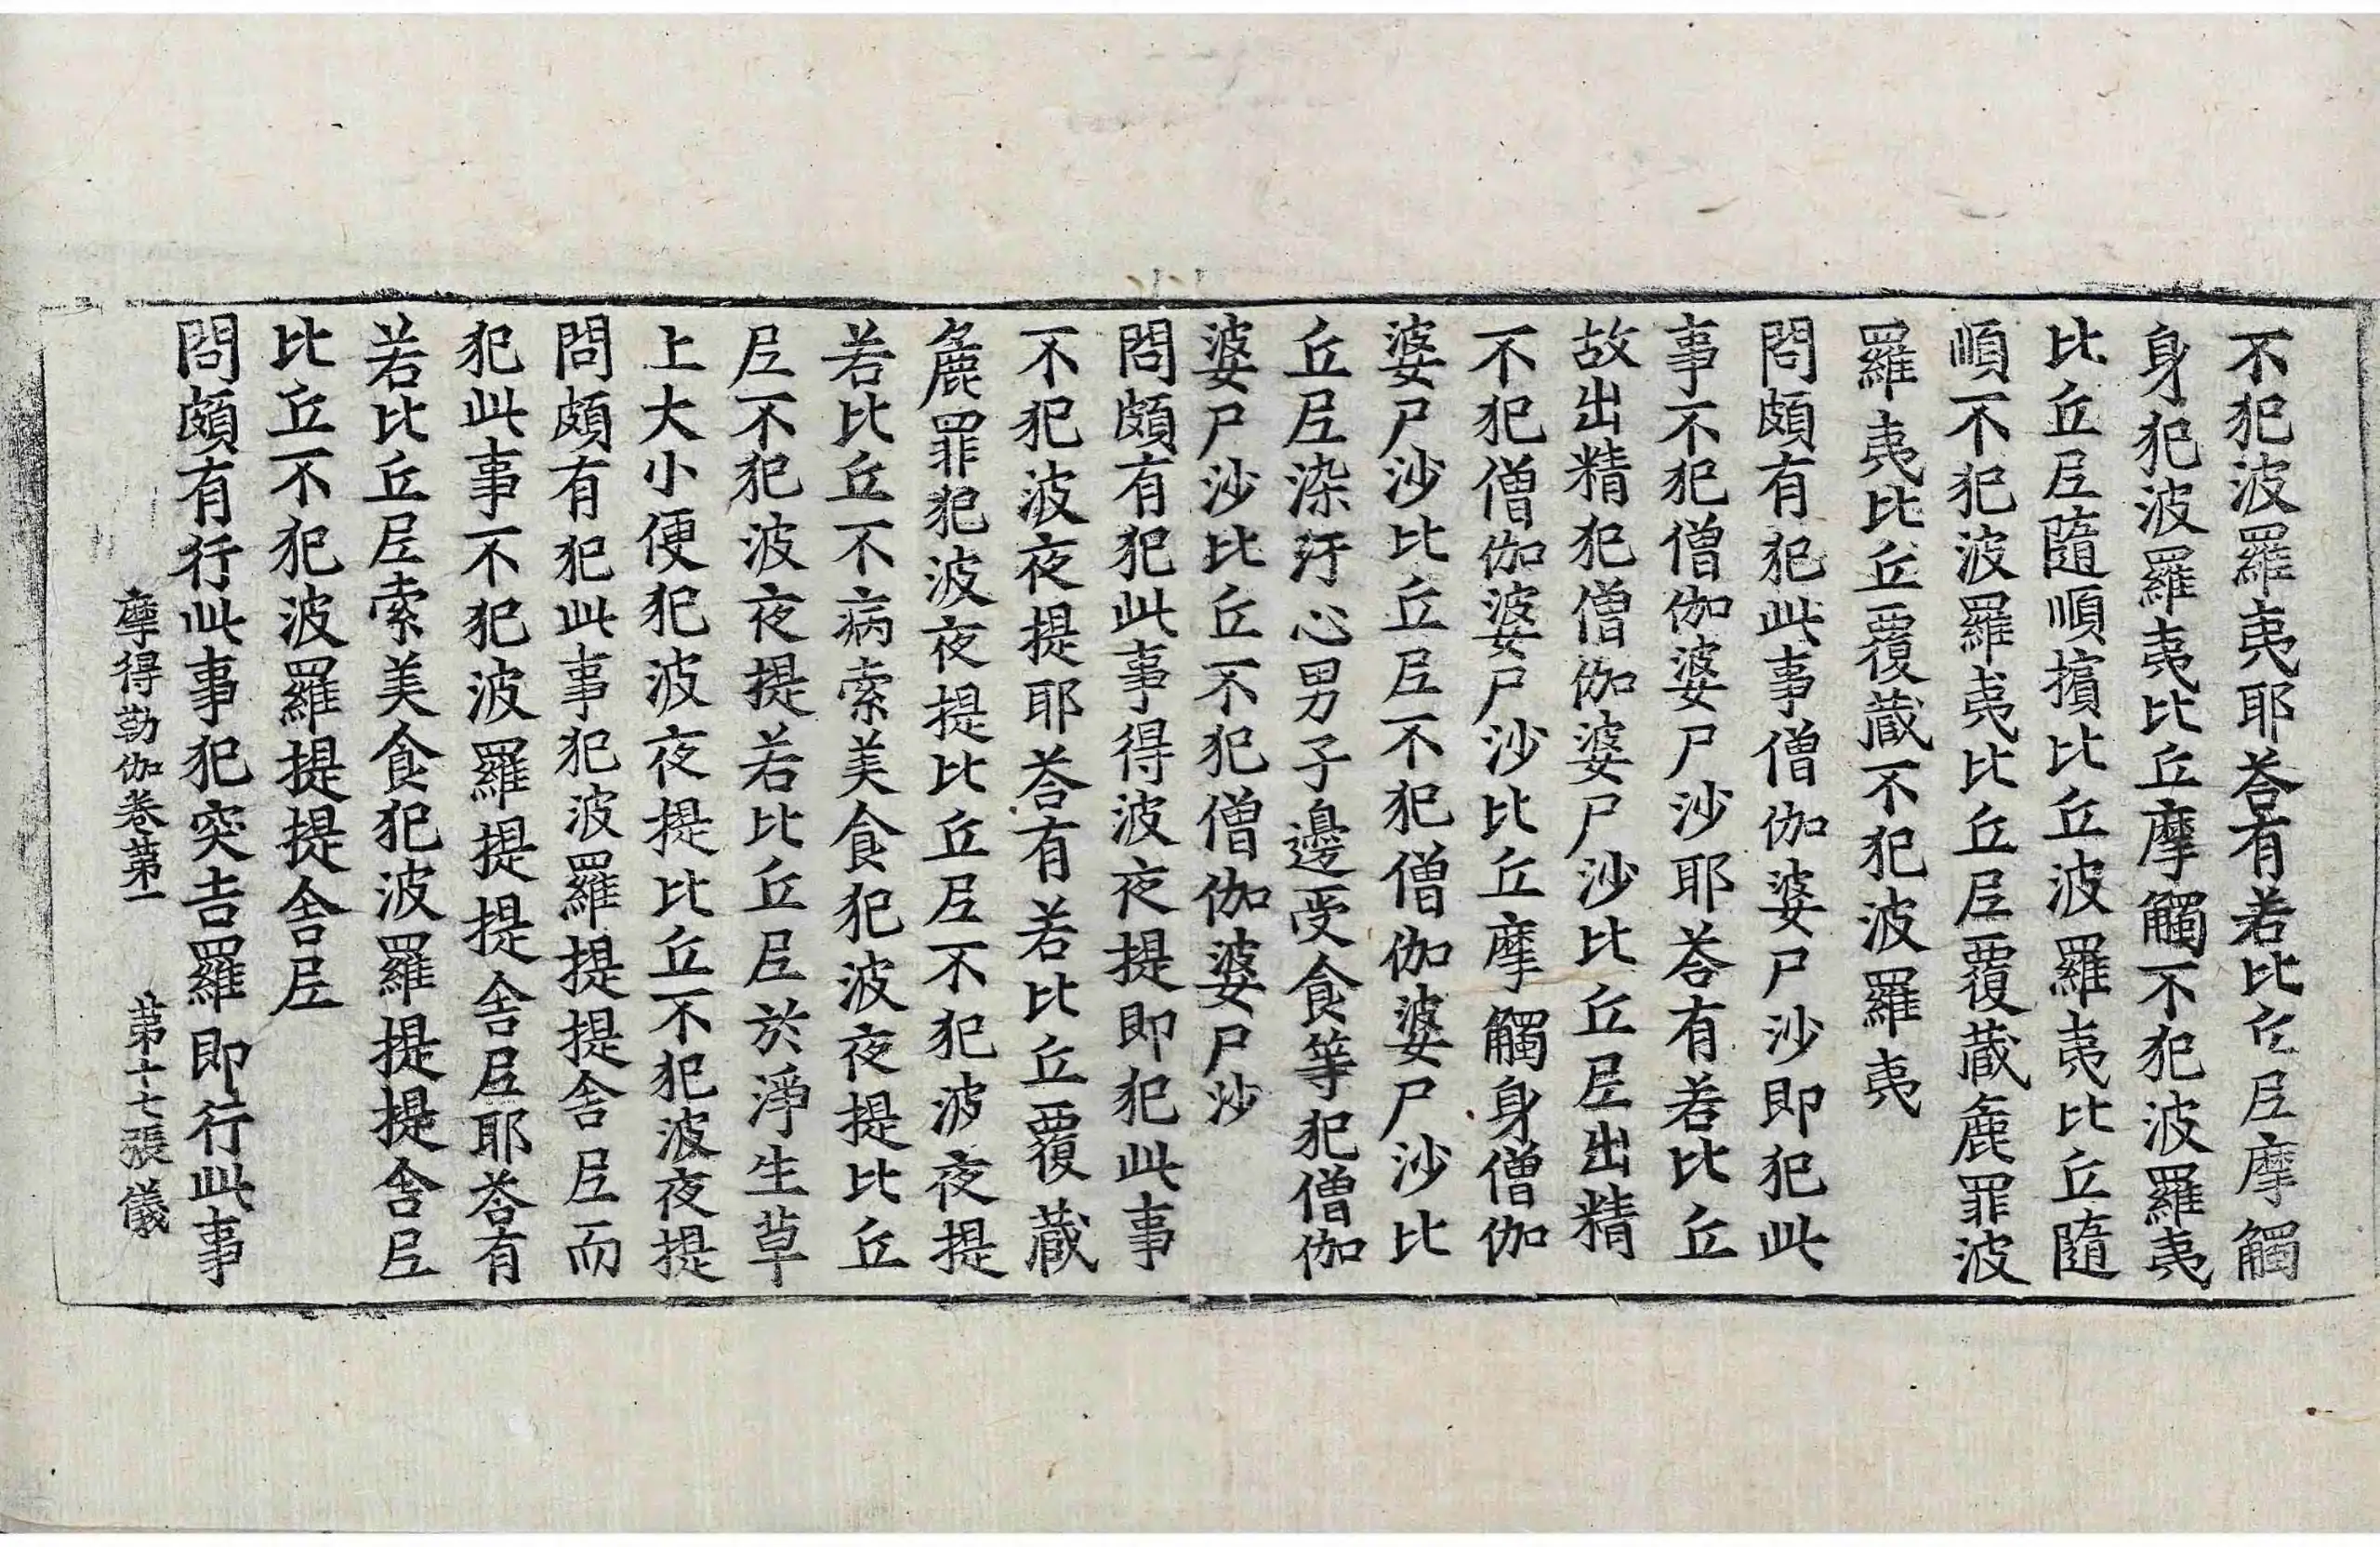 不犯波羅夷耶荅有若比丘尼摩觸
身犯波羅夷比丘摩觸不犯波羅夷
比丘尼隨順擯比丘波羅夷比丘隨
順不犯波羅夷比丘尼覆藏麁罪波
羅夷比丘覆藏不犯波羅夷
問頗有犯此事僧伽婆尸沙即犯此
事不犯僧伽婆尸沙耶荅有若比丘
故出精犯僧伽婆尸沙比丘尼出精
不犯僧伽婆尸沙比丘摩觸身僧伽
婆尸沙比丘尼不犯僧伽婆尸沙比
丘尼染汙心男子邊受食等犯僧伽
婆尸沙比丘不犯僧伽婆尸沙
問頗有犯此事得波夜提即犯此事
不犯波夜提耶荅有若比丘覆藏
麁罪犯波夜提比丘尼不犯波夜提
若比丘不病索美食犯波夜提比丘
尼不犯波夜提若比丘尼於淨生草
上大小便犯波夜提比丘不犯波夜提
問頗有犯此事犯波羅提提舍尼而
犯此事不犯波羅提提舍尼耶荅有
若比丘尼索美食犯波羅提提舍尼
比丘不犯波羅提提舍尼
問頗有行此事犯突吉羅即行此事
摩得勒伽卷第一 第十七張 儀